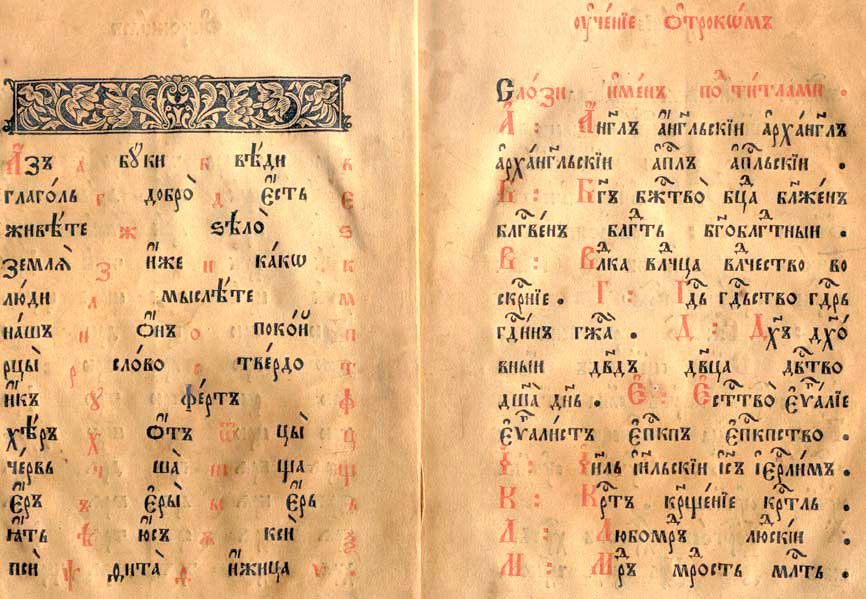 А҆зъ а бꙋки б вѣди в
глаго́ль г добро̀ д є҆́сть є
живѣ́те ж ѕѣлѡ̀ ѕ
землѧ̀ з и҆́же и ка́кѡ к
лю́ди л мыслѣ́те м
на́шъ н ѻ҆́нъ о поко́й п
рцы̀ р сло́во с тве́рдо т
и҆́къ ꙋ фе́ртъ ф
хѣ́ръ х ѿтъ ѿ цы̀ ц
че́рвь ч ша̀ ш ща щ
є҆́ръ ъ є҆ры̀ ы є҆́рь ь
ꙗ҆́ть ѣ ю҆́съ ѫ ксѝ ѯ
псѝ ѱ ѳита̀ ѳ и҆́жица ѵ
ᲂу҆че́нїе ѻ҆трокѡ́мъ
Сло́зи и҆ме́нъ по ти́тлами .
А҆ : А҆́нг҃лъ а҆́нг҃льскїи а҆рха́нг҃лъ
а҆рха́нг҃льскїи а҆пⷭ҇лъ а҆пⷭ҇льскїи .
Б : Бг҃ъ бж҃тво̀ бцⷣа бл҃же́нъ
блгⷭ҇ве́нъ блгⷣть бг҃облгⷣтныи .
В : Влⷣка влⷣчца влⷣчество во
скрⷭ҇нїе . Г : Гдⷭ҇ь гдⷭ҇ьство гдⷭ҇рь
гдⷭ҇и́нъ гжⷭ҇а . Д : Дх҃ъ дх҃о́
вныи дв҃дъ дв҃ца дв҃тво
дш҃а̀ дн҃ь . Є҆ : Є҆стⷭ҇тво̀ є҆ѵⷢ҇а́лїе
є҆ѵⷢ҇али́стъ є҆пⷭ҇кпъ є҆пⷭ҇кпство .
І҆ : І҆и҃ль і҆и҃льскїи і҆с҃ъ і҆ерⷭ҇ли́мъ .
К : Крⷭ҇тъ крⷭ҇ще́нїе крⷭ҇тль .
Л : Любомрⷣъ люⷣскїи .
М : Мрⷣъ мрⷣость млⷭ҇ть .